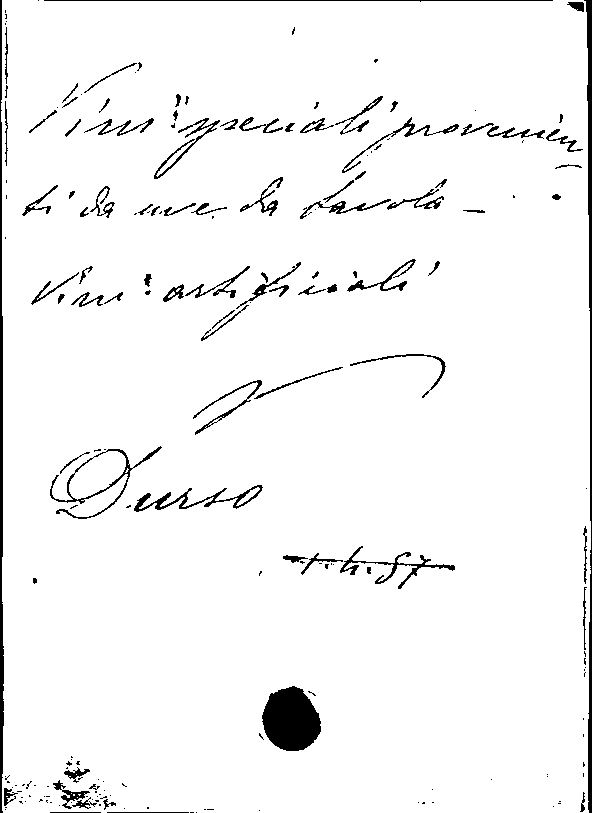 Vini speciali provenien-
ti da uve da tavola -
Vini artificiali
Durso